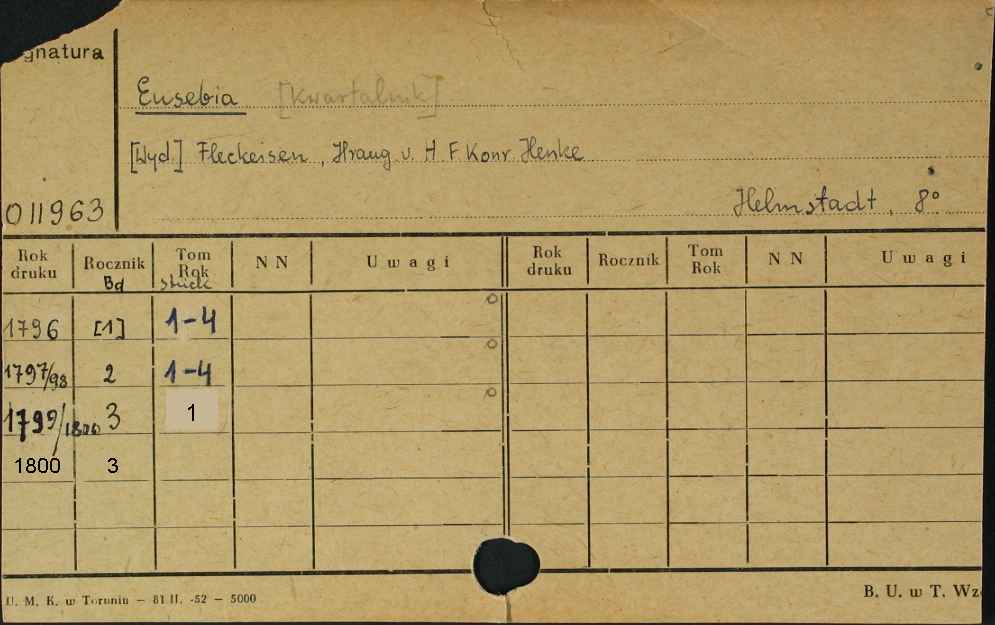 gnatura
Eusebia [Kwartalnik]
[Wyd.] Fleckeisen, Hrsug v. H. F. Konr. Henke
Helmstadt, 8°
011963
Rok druku Rocznik Bd Tom Rok stück NN Uwagi Rok druku Rocznik Tom Rok NN Uwagi
1796 [1] 1-4
1797/98 2 1-4
1799/1800 3 1
1800 3
U. M. K. w Toruniu — 81 II. -52 — 5000
B. U. w T. Wz